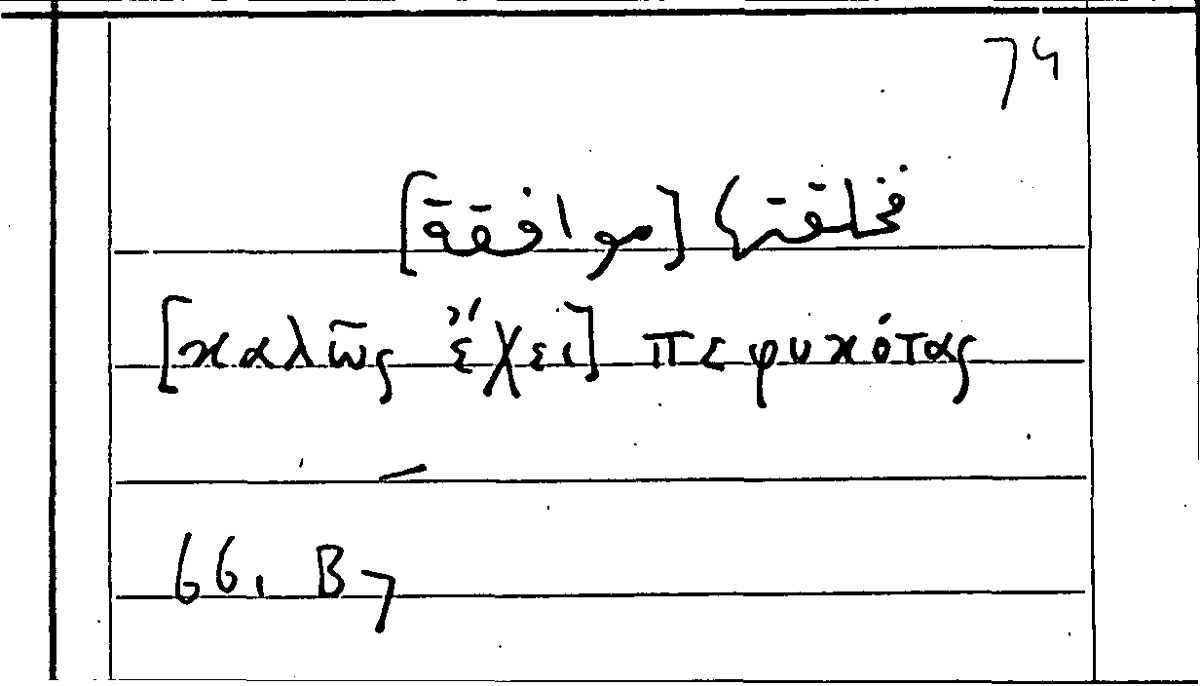 74
فخلقتها [موافقة]
[καλῶς ἔχει] πεφυκότας
—
66, B7